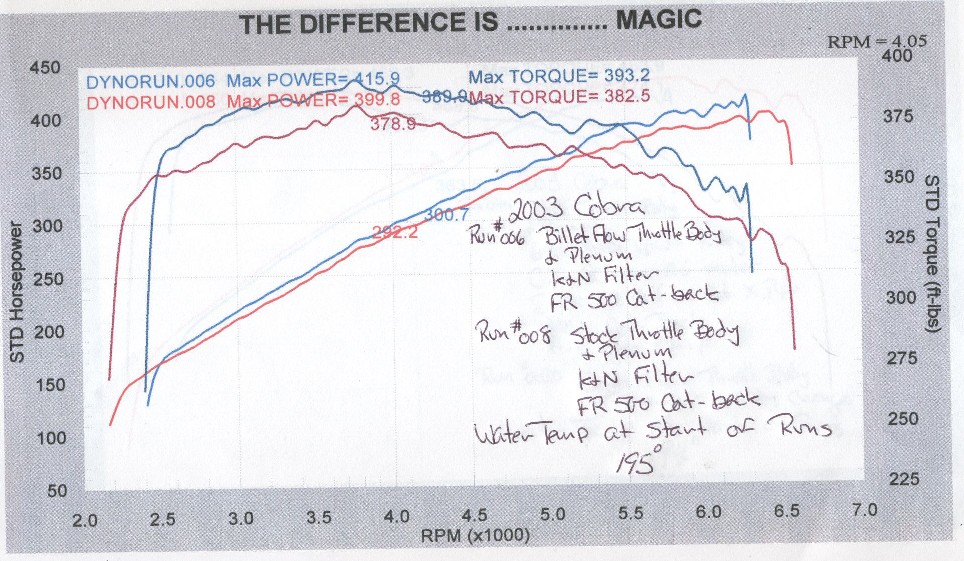 THE DIFFERENCE IS .............. MAGIC
RPM = 4.05
DYNORUN.006 Max POWER= 415.9 Max TORQUE= 393.2
DYNORUN.008 Max POWER= 399.8 Max TORQUE= 382.5
389.9
378.9
300.7
292.2
2003 Cobra
Run #006 Billet Flow Throttle Body
& Plenum
K&N Filter
FR 500 Cat-back
Run #008 Stock Throttle Body
& Plenum
K&N Filter
FR 500 Cat-back
Water Temp at Start of Runs
195°
STD Horsepower
450
400
350
300
250
200
150
100
50
STD Torque (ft-lbs)
400
375
350
325
300
275
250
225
2.0 2.5 3.0 3.5 4.0 4.5 5.0 5.5 6.0 6.5 7.0
RPM (x1000)